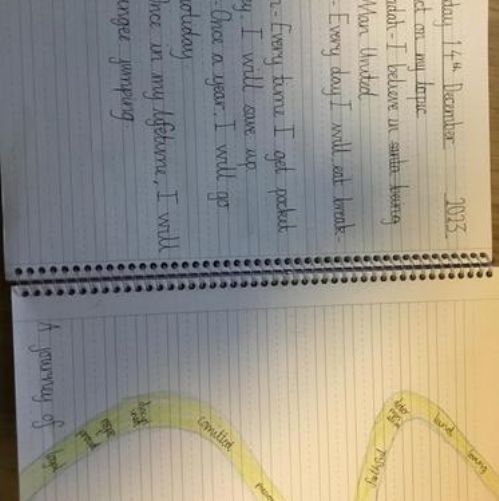 day 14th December 2023
ct on my topic
dah - I believe in santa being
Man United
- Every day I will eat break-
n - Every time I get pocket
y, I will save up
- Once a year, I will go
holiday
nce in my lifetime, I will
ungee jumping
A journey of
loyal
proud
comitted
kind
loving